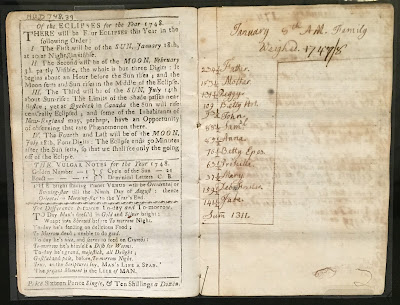 Of the ECLIPSES for the Year 1748.
THERE will be Four ECLIPSES this Year in the
following Order:
I. The First will be of the SUN, January 18th,
at 10 at Night, Invisible.
II. The Second will be of the MOON, February
3d, partly Visible, the whole is but three Digits: It
begins about an Hour before the Sun rises; and the
Moon sets and Sun rises in the Middle of the Eclipse.
III. The Third will be of the SUN, July 14th
about Sun-rise: The Limits of the shade passes near
Boston; yet at Quebeck in Canada the Sun will rise
centrally Eclipsed; and some of the Inhabitants of
New-England may, perhaps, have an Opportunity
of observing that rare Phænomenon there.
IV. The Fourth and Last will be of the MOON,
July 28th, Four Digits: The Eclipse ends 30 Minutes
after the Sun sets, so that we shall see only the going
off of the Eclipse.
THE VULGAR NOTES for the Year 1748.
Golden Number Cycle of the Sun
Dominical Letters C B
Day of August
Evening-Star to the Year's End.
The Difference between To-day and To-morrow.
TO Day Man's dress'd in Gold and Silver bright;
Wrapt in a Shroud before To-morrow Night.
To-day he's feeding on delicious Food;
To-Morrow dead; unable to do good.
To-day he's nice, and scorns to feed on Crumbs;
To-morrow he's himself a Dish for Worms.
To-day he's grand, majestick, all Delight;
The present Moment is the LIFE of MAN.
Price Sixteen Pence Single, & Ten Shillings a Dozen.
January 8th A.M. Family
Weighed. 1747/8
Father
Mother
Peggy
Betty
John
Sam
Anna
Betty
Mary
Kate
Sum 1311